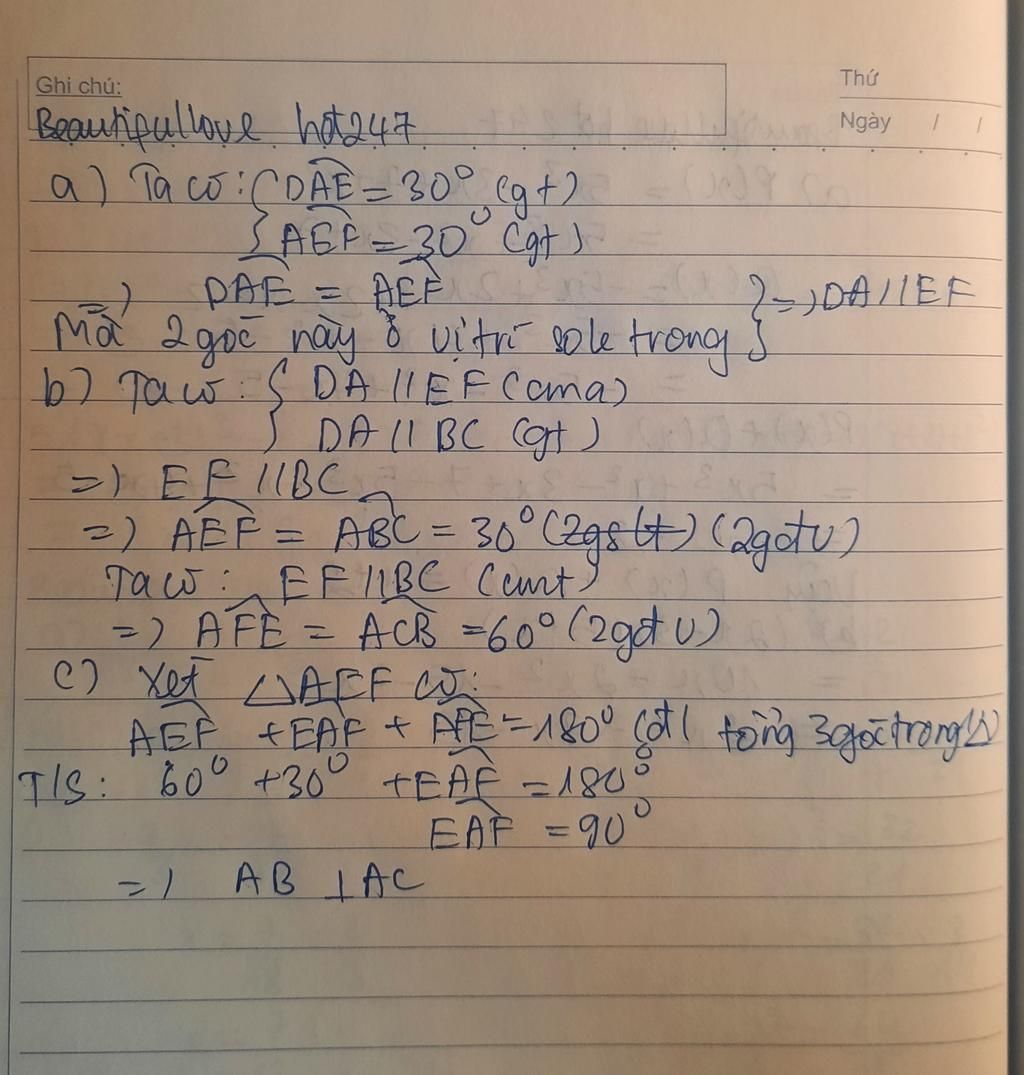 Ghi chú:
Thứ
Beautifullove hơt247
Ngày / /
a) Ta có: { DAE = 30° (gt)
{ AEF = 30° (gt)
=) DAE = AEF } =) DA // EF
Mà 2 góc này ở vị trí sole trong }
b) Ta có: { DA // EF (cma)
DA // BC (gt)
=) EF // BC
=) AEF = ABC = 30° (2gslt) (2gđtv)
Ta có: EF // BC (cmt)
=) AFE = ACB = 60° (2gđtv)
c) Xét △AEF có:
AEF + EAF + AFE = 180° (đt/ tổng 3 góc trong △)
T/S: 60° + 30° + EAF = 180°
EAF = 90°
=) AB ⊥ AC